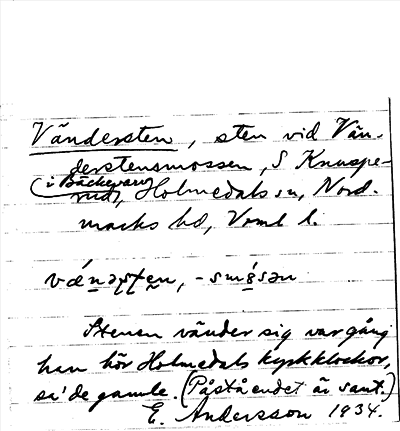 Vändersten, sten vid Vän-
derstensmossen, S Knuspe-
(i Bäckevarv)
rud, Holmedals sn, Nord-
marks hd, Vrml l.
vǽnəʂʈen, -smɞ́sən
Stenen vänder sig var gång
han hör Holmedals kyrkklockor,
sa' de gamle. (Påståendet är sant.)
E. Andersson 1934.